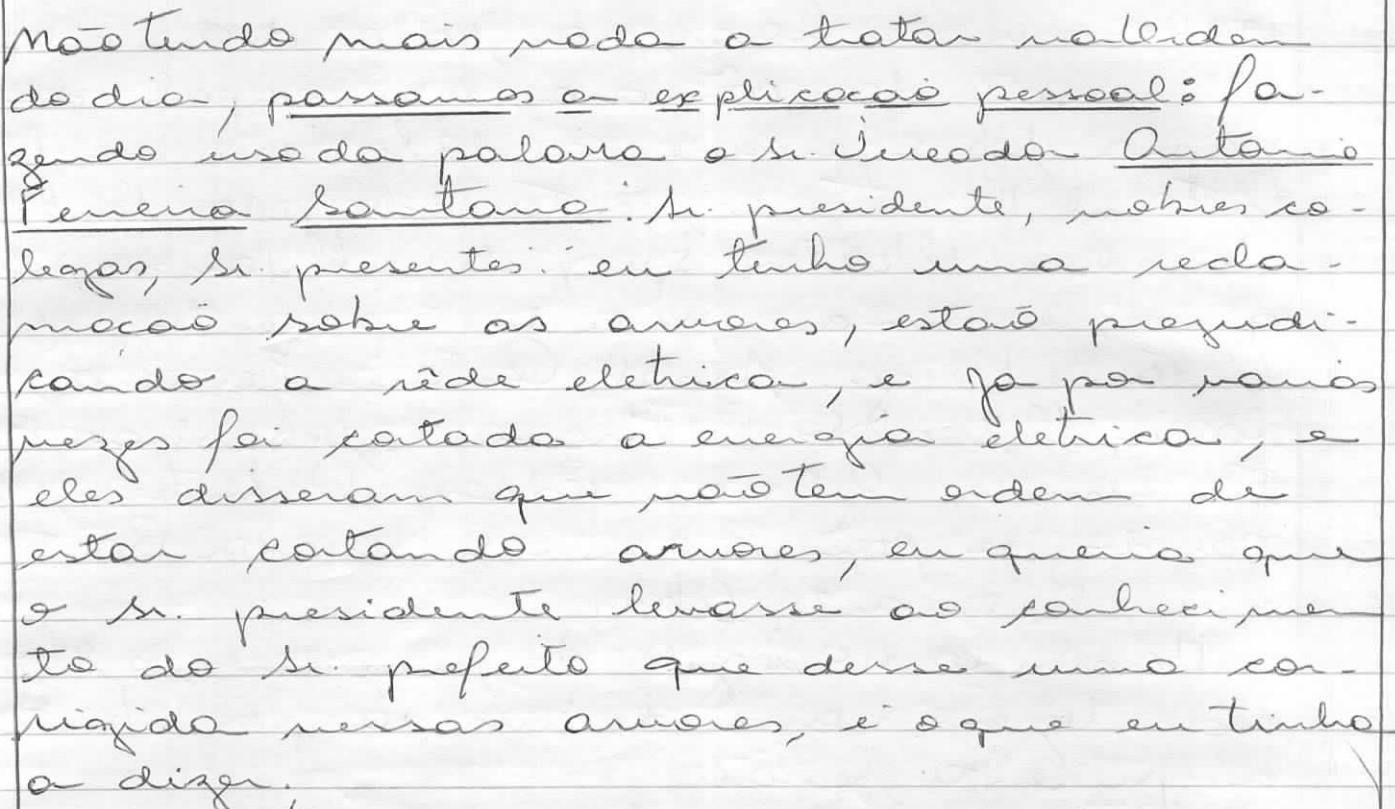 Não tendo mais nada a tratar na Ordem
do dia, passamos a explicacaõ pessoal: fa-
zendo uso da palavra o Sr. Vereador Antonio
Pereira Santana: Sr. presidente, nobres co-
legas, Sr. presentes: eu tenho uma recla-
macaõ sobre as arvores, estaõ prejudi-
cando a rêde eletrica, e ja por varias
vezes foi cortada a energia eletrica, e
eles disseram que não tem ordem de
estar cortando arvores, eu queria que
o Sr. presidente levasse ao conhecimen
to do Sr. prefeito que desse uma cor-
rigida nessas arvores, é o que eu tinha
a dizer.